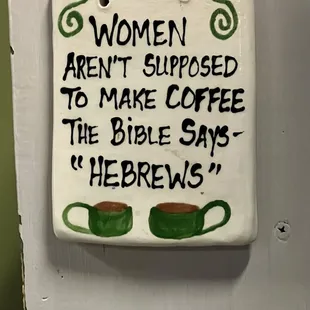 WOMEN
AREN'T SUPPOSED
TO MAKE COFFEE
THE BIBLE SAYS-
"HEBREWS"